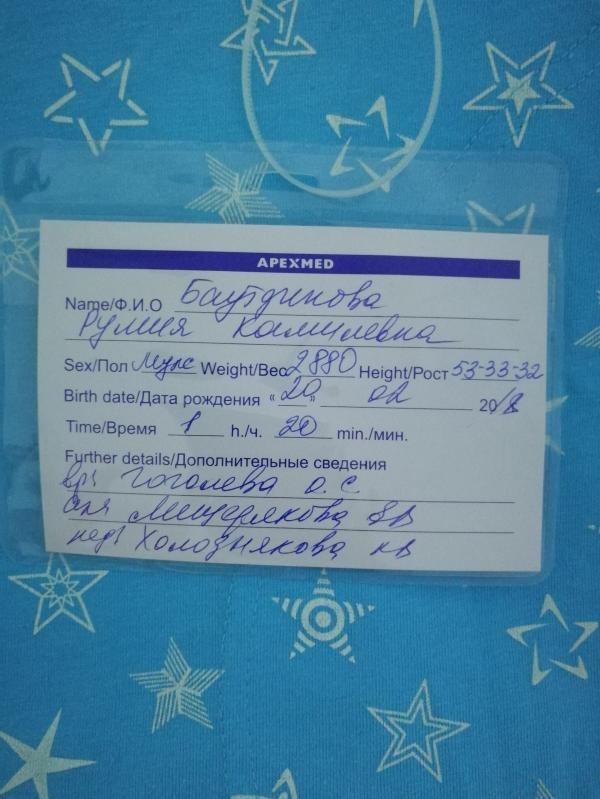 APEXMED
Name/Ф.И.О Баутдинова
Рулия Камилевна
Sex/Пол Муж Weight/Вес 2880 Height/Рост 53-33-32
Birth date/Дата рождения «20» 02 2018
Time/Время 1 h./ч. 20 min./мин.
Further details/Дополнительные сведения
вр: Гоголева О.С
Мещерякова
Холознякова